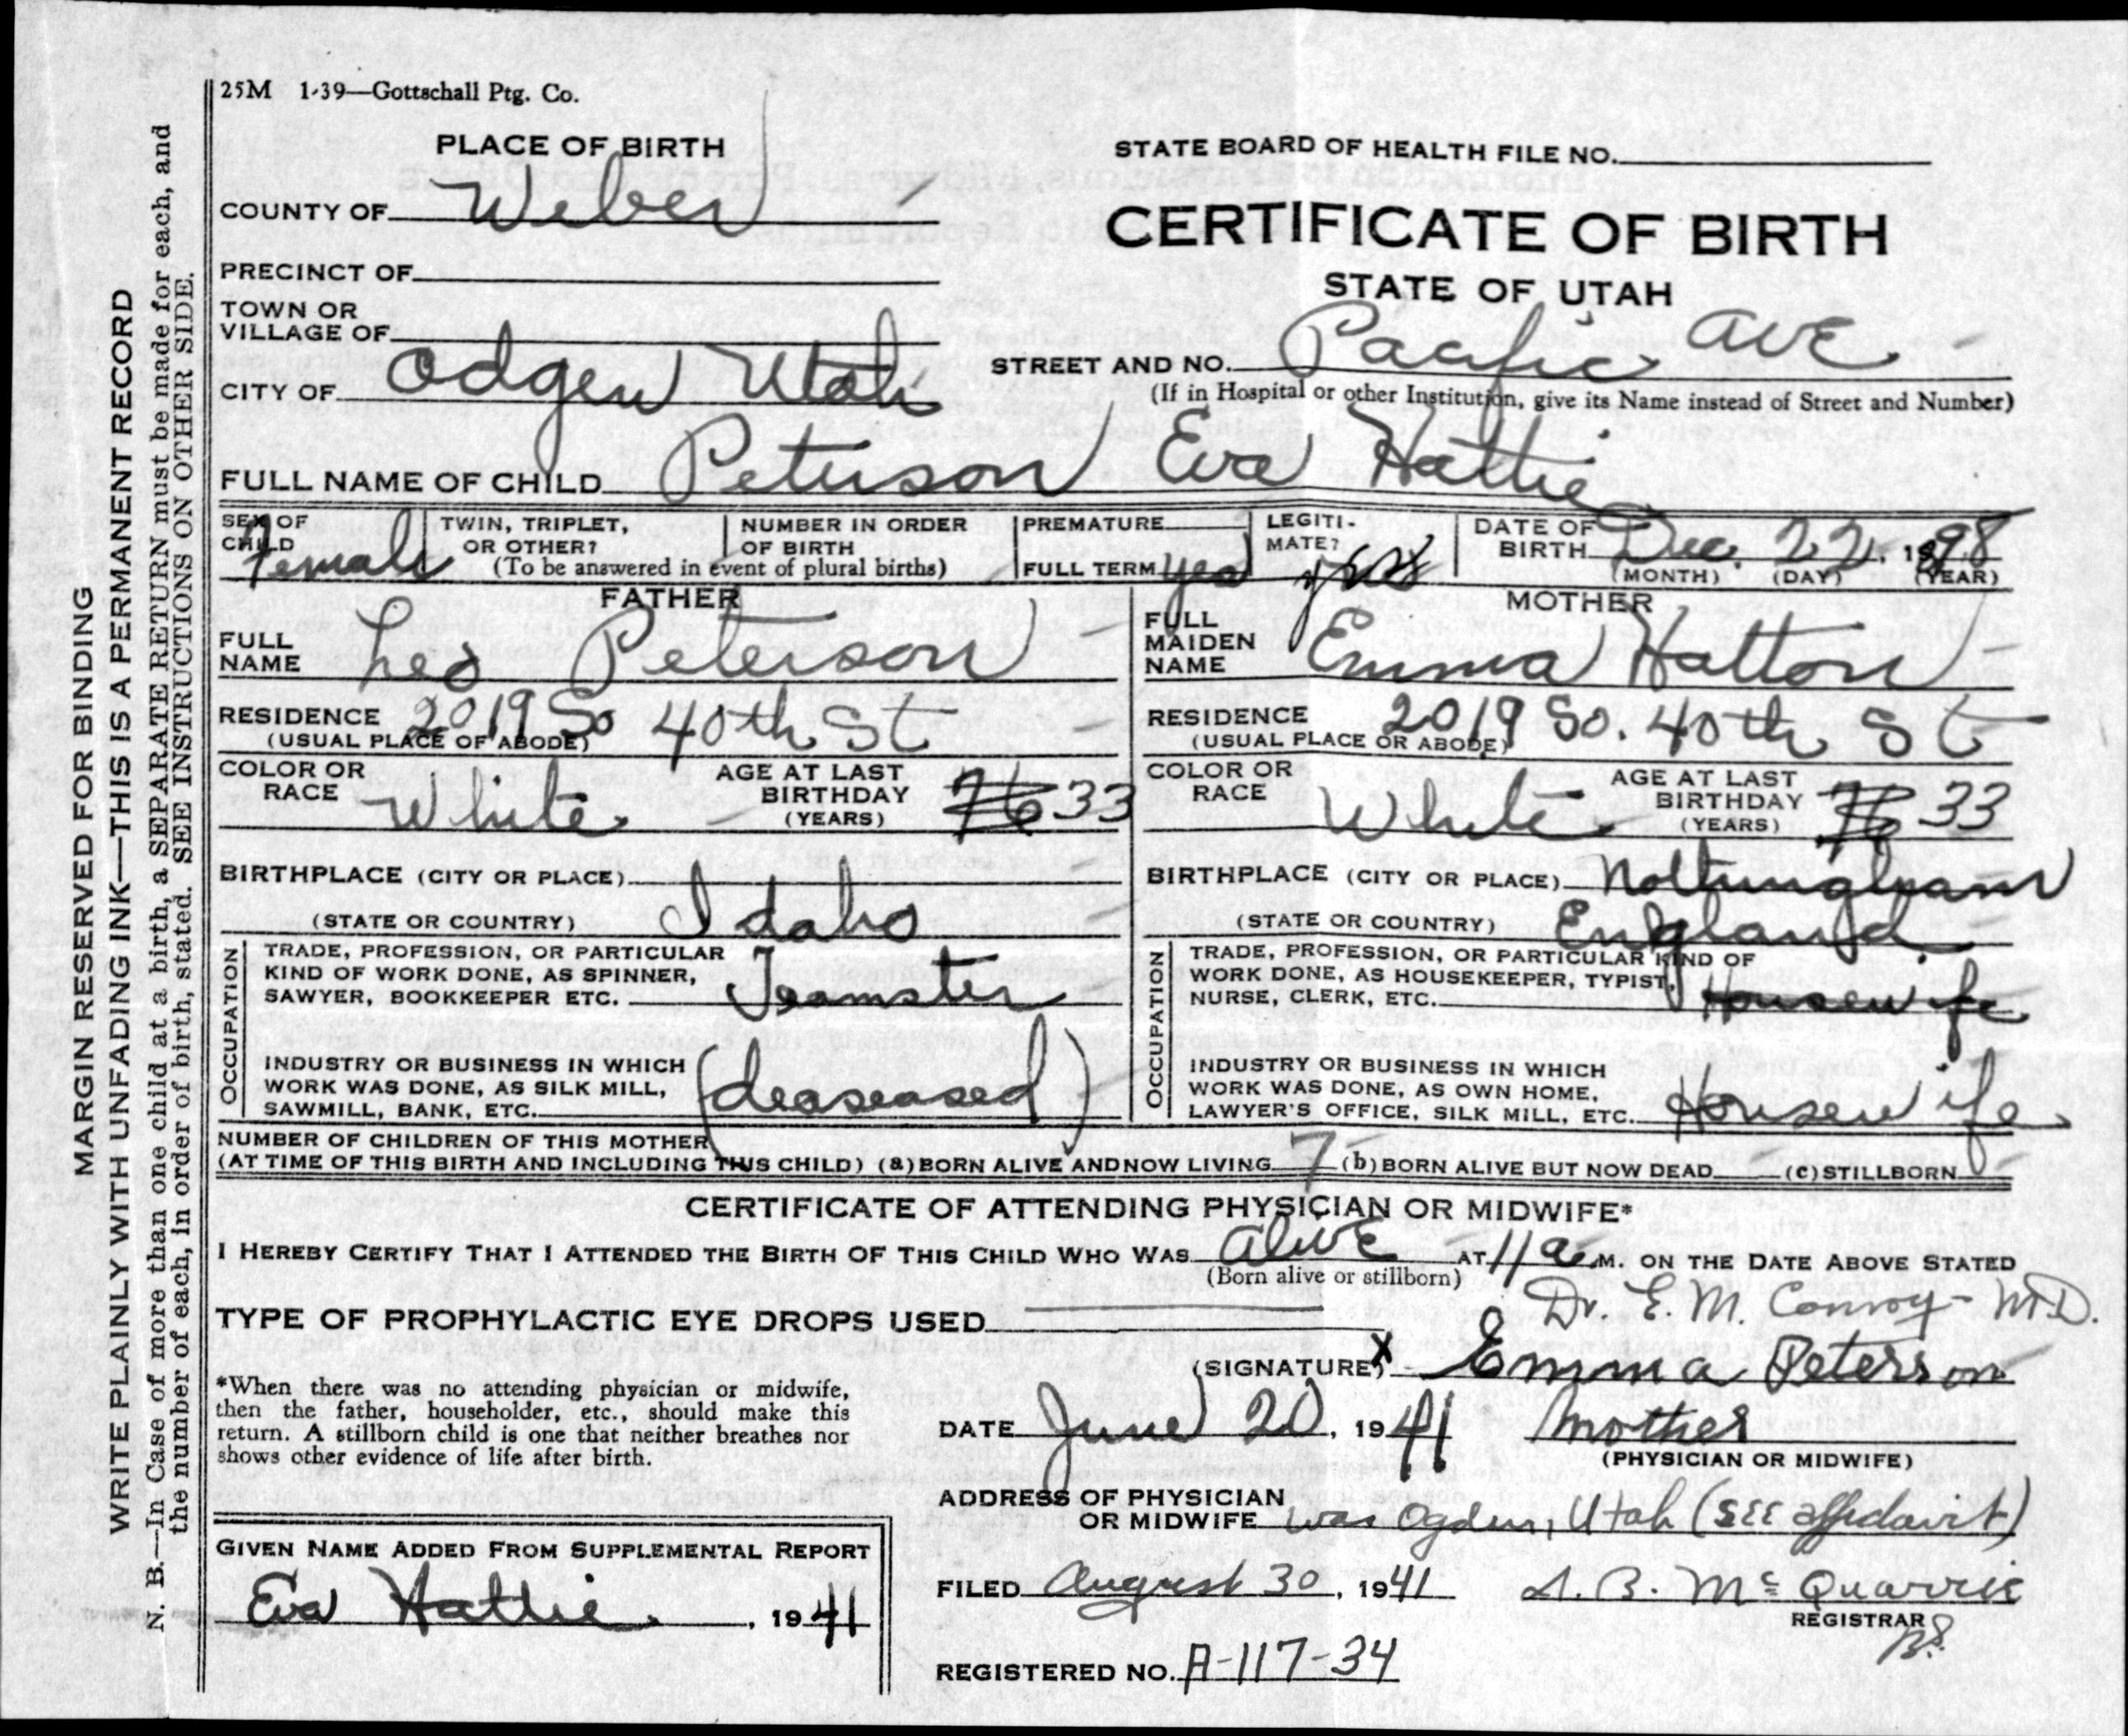 25M 1-39—Gottschall Ptg. Co.
PLACE OF BIRTH
COUNTY OF Weber
PRECINCT OF
TOWN OR
VILLAGE OF
CITY OF Odgen Utah
STATE BOARD OF HEALTH FILE NO.
CERTIFICATE OF BIRTH
STATE OF UTAH
STREET AND NO. Pacific AVE
(If in Hospital or other Institution, give its Name instead of Street and Number)
FULL NAME OF CHILD Peterson Eva Hattie
SEX OF CHILD Female
TWIN, TRIPLET, OR OTHER?
NUMBER IN ORDER OF BIRTH
(To be answered in event of plural births)
PREMATURE
FULL TERM yes
LEGITI-MATE? yes
DATE OF BIRTH Dec. 22, 1898
(MONTH) (DAY) (YEAR)
FATHER
FULL NAME Leo Peterson
RESIDENCE 2019 So 40th St
(USUAL PLACE OF ABODE)
COLOR OR RACE White
AGE AT LAST BIRTHDAY 76 33
(YEARS)
BIRTHPLACE (CITY OR PLACE)
(STATE OR COUNTRY) Idaho
OCCUPATION
TRADE, PROFESSION, OR PARTICULAR
KIND OF WORK DONE, AS SPINNER,
SAWYER, BOOKKEEPER ETC. Teamster
INDUSTRY OR BUSINESS IN WHICH
WORK WAS DONE, AS SILK MILL,
SAWMILL, BANK, ETC. (deaseased)
MOTHER
FULL MAIDEN NAME Emma Hatton
RESIDENCE 2019 So. 40th St
(USUAL PLACE OR ABODE)
COLOR OR RACE White
AGE AT LAST BIRTHDAY 76 33
(YEARS)
BIRTHPLACE (CITY OR PLACE) Nottingham
(STATE OR COUNTRY) England
OCCUPATION
TRADE, PROFESSION, OR PARTICULAR KIND OF
WORK DONE, AS HOUSEKEEPER, TYPIST,
NURSE, CLERK, ETC. Housewife
INDUSTRY OR BUSINESS IN WHICH
WORK WAS DONE, AS OWN HOME,
LAWYER'S OFFICE, SILK MILL, ETC. Housewife
NUMBER OF CHILDREN OF THIS MOTHER
(AT TIME OF THIS BIRTH AND INCLUDING THIS CHILD) (a) BORN ALIVE AND NOW LIVING 7 (b) BORN ALIVE BUT NOW DEAD (c) STILLBORN
CERTIFICATE OF ATTENDING PHYSICIAN OR MIDWIFE*
I HEREBY CERTIFY THAT I ATTENDED THE BIRTH OF THIS CHILD WHO WAS alive AT 11 a. M. ON THE DATE ABOVE STATED
(Born alive or stillborn)
TYPE OF PROPHYLACTIC EYE DROPS USED
Dr. E. M. Conroy - M.D.
(SIGNATURE) X Emma Peterson
*When there was no attending physician or midwife,
then the father, householder, etc., should make this
return. A stillborn child is one that neither breathes nor
shows other evidence of life after birth.
DATE June 20, 1941 Mother
(PHYSICIAN OR MIDWIFE)
ADDRESS OF PHYSICIAN
OR MIDWIFE was Ogden, Utah (SEE affidavit)
FILED August 30, 1941 A. B. McQuarrie
REGISTRAR
REGISTERED NO. A-117-34
GIVEN NAME ADDED FROM SUPPLEMENTAL REPORT
Eva Hattie, 1941
MARGIN RESERVED FOR BINDING
WRITE PLAINLY WITH UNFADING INK—THIS IS A PERMANENT RECORD
N. B.—In Case of more than one child at a birth, a SEPARATE RETURN must be made for each, and
the number of each, in order of birth, stated. SEE INSTRUCTIONS ON OTHER SIDE.